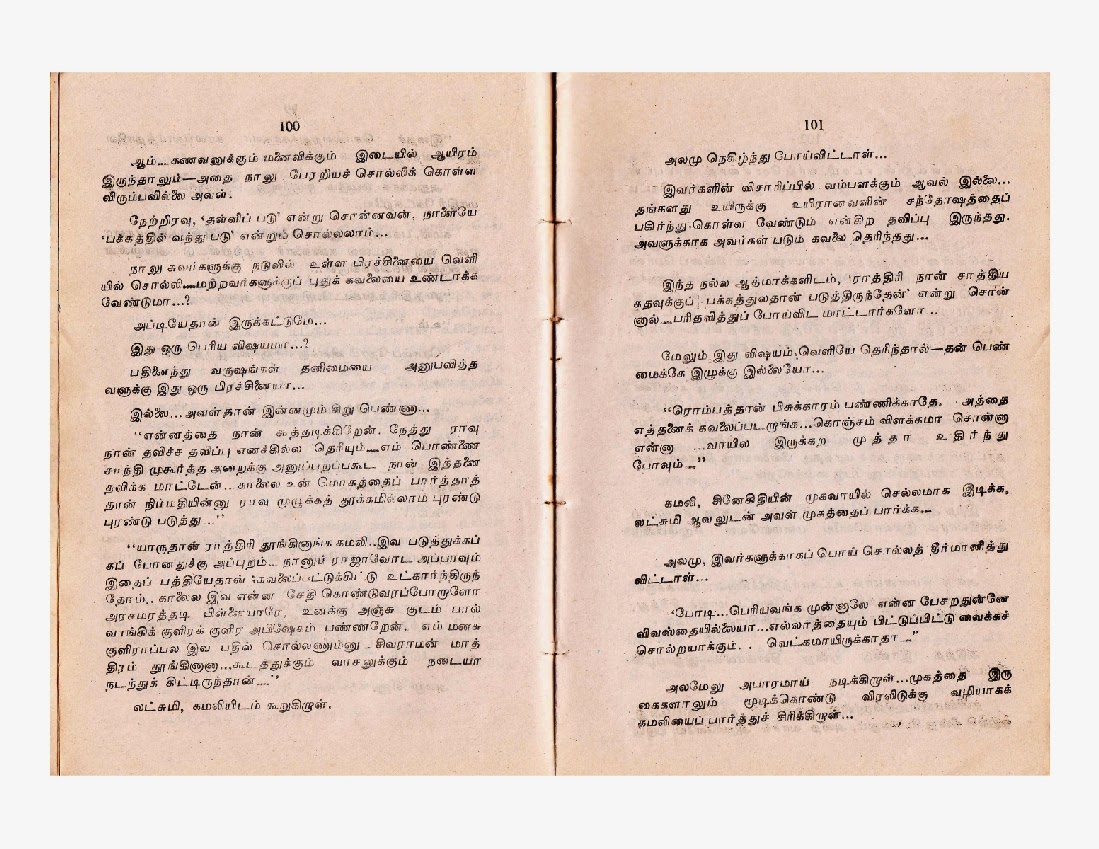 100
ஆம்....கணவனுக்கும் மனைவிக்கும் இடையில் ஆயிரம்
இருந்தாலும்—அதை நாலு பேரறியச் சொல்லிக் கொள்ள
விரும்பவில்லை அவள்.
நேற்றிரவு, 'தள்ளிப் படு' என்று சொன்னவன், நாளையே
'பக்கத்தில் வந்து படு' என்றும் சொல்லலாம்...
நாலு சுவர்களுக்கு நடுவில் உள்ள பிரச்சினையை வெளி
யில் சொல்லி....மற்றவர்களுக்குப் புதுக் கவலையை உண்டாக்க
வேண்டுமா...?
அப்டியேதான் இருக்கட்டுமே...
இது ஒரு பெரிய விஷயமா...?
பதினைந்து வருஷங்கள் தனிமையை அனுபவித்த
வளுக்கு இது ஒரு பிரச்சினையா...
இல்லை...அவள்தான் இன்னமும் சிறு பெண்ணா...
“என்னத்தை நான் கூத்தடிக்கிறேன். நேத்து ராவு
நான் தவிச்ச தவிப்பு எனக்கில்ல தெரியும்....எம் பொண்ணை
சாந்தி முகூர்த்த அறைக்கு அனுப்பறப்பகூட நான் இத்தனை
தவிக்க மாட்டேன்...காலைல உன் மொகத்தைப் பார்த்தாத்
தான் நிம்மதியின்னு ராவு முழுக்கத் தூக்கமில்லாம புரண்டு
புரண்டு படுத்து ...”
“யாருதான் ராத்திரி தூங்கினாங்க கமலி..இவ படுத்துக்கப்
கப் போனதுக்கு அப்புறம்... நானும் ராஜாவோட அப்பாவும்
இதைப் பத்தியேதான் கவலைப்பட்டுக்கிட்டு உட்கார்ந்திருந்
தோம்.. காலைல இவ என்ன சேதி கொண்டுவரப்போருளோ
அரசமரத்தடி பிள்ளையாரே, உனக்கு அஞ்சு குடம் பால்
வாங்கிக் குளிரக் குளிர அபிஷேகம் பண்ணறேன். எம் மனசு
குளிராப்பல இவ பதில் சொல்லணும்னு . சிவராமன் மாத்
திரம் தூங்கினானா...கூடத்துக்கும் வாசலுக்கும் நடையா
நடந்துக் கிட்டிருந்தான்....”
லட்சுமி, கமலியிடம் கூறுகிறாள்.
101
அலமு நெகிழ்ந்து போய்விட்டாள்...
இவர்களின் விசாரிப்பில் வம்பனக்கும் ஆவல் இல்லை...
தங்களது உயிருக்கு உயிரானவளின் சந்தோஷத்தைப்
பகிர்ந்து கொள்ள வேண்டும் என்கிற தவிப்பு இருந்தது.
அவளுக்காக அவர்கள் படும் கவலை தெரிந்தது...
இந்த நல்ல ஆத்மாக்களிடம், 'ராத்திரி நான் சாத்திய
கதவுக்குப் பக்கத்துலதான் படுத்திருந்தேன்' என்று சொன்
னால்....பரிதவித்துப் போய்விட மாட்டார்களோ...
மேலும் இது விஷயம் வெளியே தெரிந்தால்—தன் பெண்
மைக்கே இழுக்கு இல்லையோ...
“ரொம்பத்தான் பிசுக்காரம் பண்ணிக்காதே. அத்தை
எத்தனைக் கவலைப்படறாங்க...கொஞ்சம் விளக்கமா சொன்னா
என்னா ...வாயில இருக்கற முத்தா உதிர்ந்து
போவும்...”
கமலி, சினேகிதியின் முகவாயில் செல்லமாக இடிக்க,
லட்சுமி ஆவலுடன் அவள் முகத்தைப் பார்க்க...
அலமு, இவர்களுக்காகப் பொய் சொல்லத் தீர்மானித்து
விட்டாள்...
“போடி...பெரியவங்க முன்னாலே என்ன பேசறதுன்னே
விவஸ்தையில்லையா...எல்லாத்தையும் பிட்டுப்பிட்டு வைக்கச்
சொல்றயாக்கும். . வெட்கமாயிருக்காதா ...”
அலமேலு அபாரமாய் நடிக்கிறாள்...முகத்தை இரு
கைகளாலும் மூடிக்கொண்டு விரலிடுக்கு வழியாகக்
கமலியைப் பார்த்துச் சிரிக்கிறாள்...